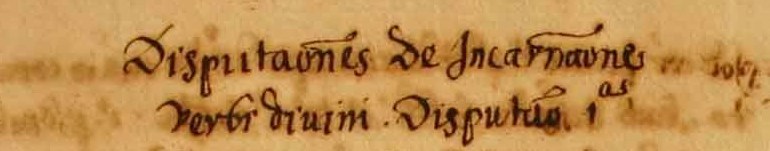 Disputaōnes de Incarnāone
Verbi diuini. Disputāo 1ᵃˢ